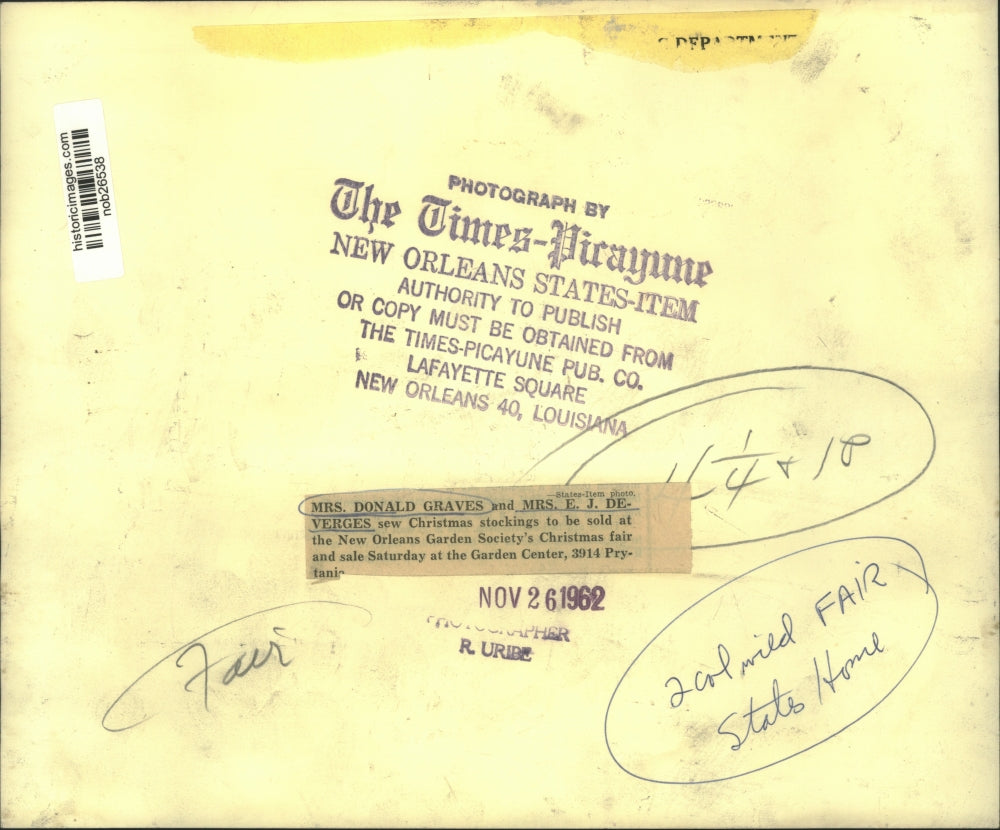 DEPARTMENT
historicimages.com
nob26538
PHOTOGRAPH BY
The Times-Picayune
NEW ORLEANS STATES-ITEM
AUTHORITY TO PUBLISH
OR COPY MUST BE OBTAINED FROM
THE TIMES-PICAYUNE PUB. CO.
LAFAYETTE SQUARE
NEW ORLEANS 40, LOUISIANA
11 1/4 x 18
—States-Item photo.
MRS. DONALD GRAVES and MRS. E. J. DE-
VERGES sew Christmas stockings to be sold at
the New Orleans Garden Society's Christmas fair
and sale Saturday at the Garden Center, 3914 Pry-
tania
NOV 26 1962
PHOTOGRAPHER
R. URIBE
Fair
2 col FAIR
States Home